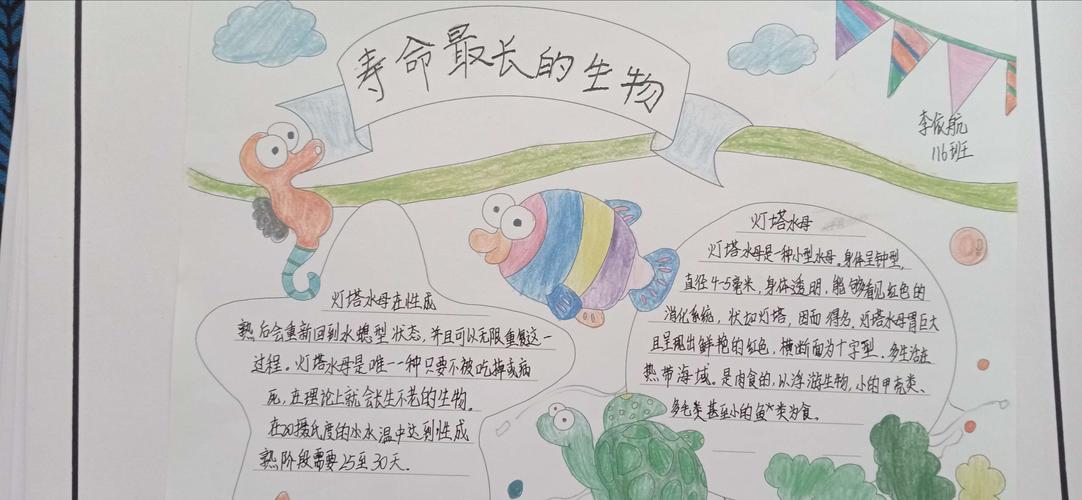 寿命最长的生物
李依航
116班
灯塔水母在性成
熟后会重新回到水螅型状态,并且可以无限重复这一
过程。灯塔水母是唯一一种只要不被吃掉或病
死,在理论上就会长生不老的生物。
在20摄氏度的水温中达到性成
熟阶段需要25至30天.
灯塔水母
灯塔水母是一种小型水母.身体呈钟型,
直径4-5毫米,身体透明,能够看见红色的
消化系统,状如灯塔,因而得名,灯塔水母胃巨大
且呈现出鲜艳的红色,横断面为十字型.多生活在
热带海域。是肉食的,以浮游生物,小的甲壳类、
多毛类甚至小的鱼类为食。